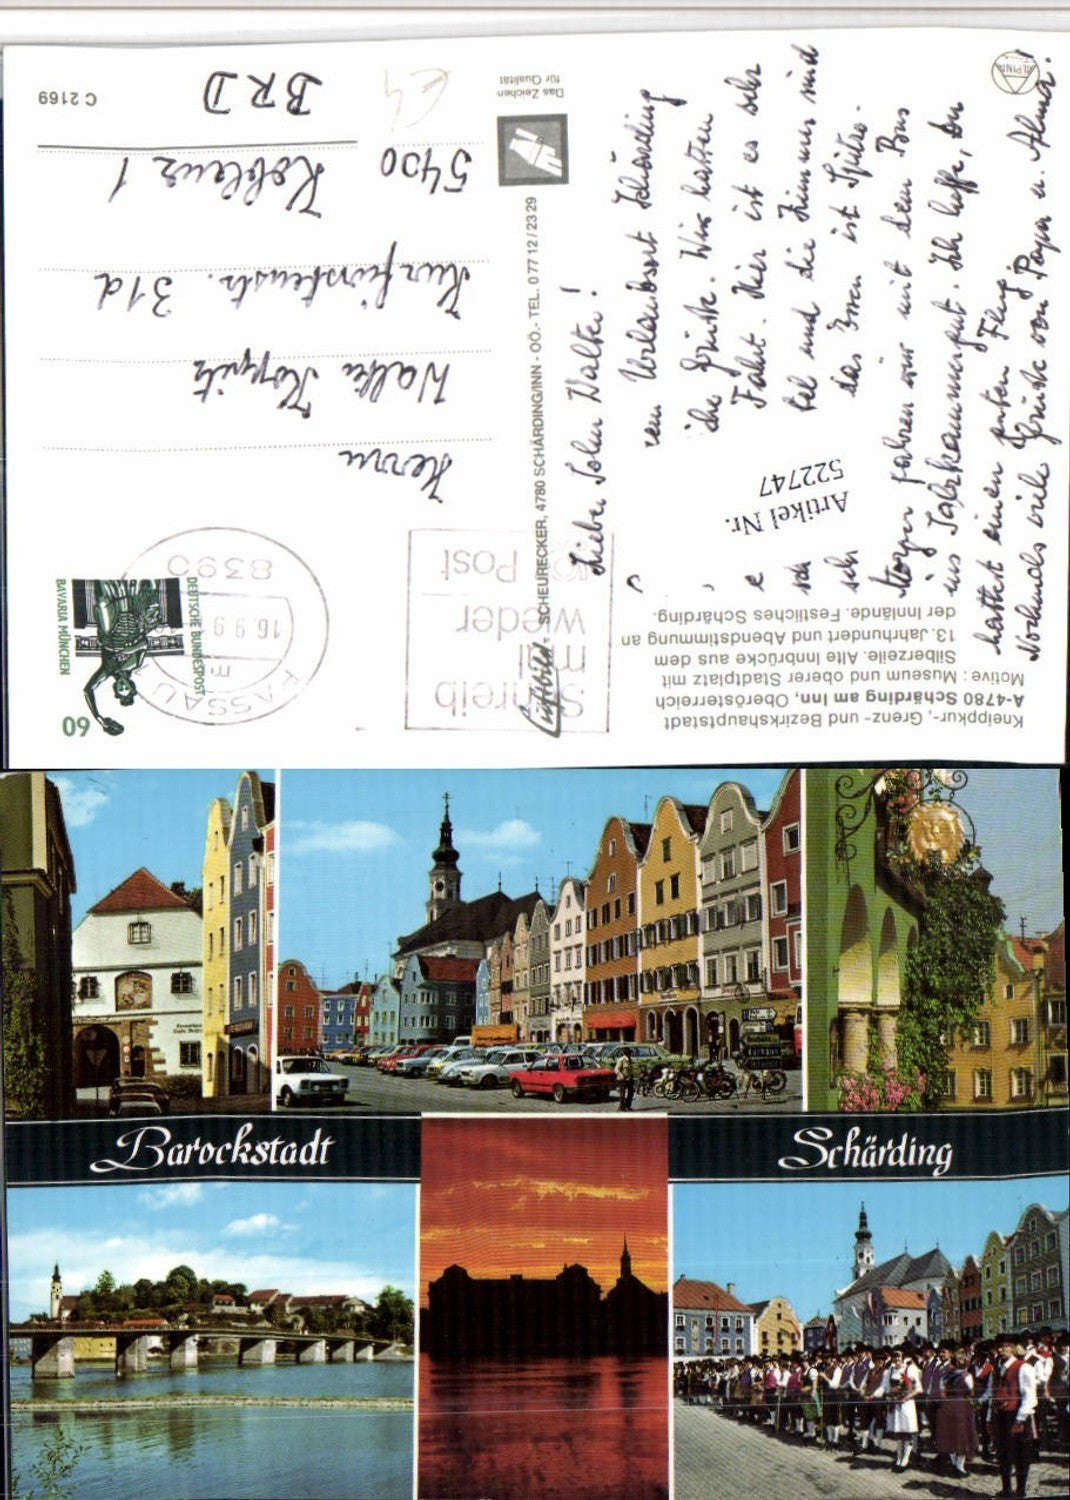 Kneippkur-, Grenz- und Bezirkshauptstadt
A-4780 Schärding am Inn, Oberösterreich
Motive: Museum und oberer Stadtplatz mit
Silberzeile. Alte Innbrücke aus dem
13. Jahrhundert und Abendstimmung an
der Innlände. Festliches Schärding.
Luftbild-
SCHEURECKER, 4780 SCHÄRDING/INN - OÖ.- TEL. 0 77 12 / 23 29
Das Zeichen
für Qualität
ALPINA
C 2169
Artikel Nr.
522747
Schreib
mal
wieder
Post
PASSAU
16.9.9
8390
60
DEUTSCHE BUNDESPOST
BAVARIA MÜNCHEN
Herrn
Walter Koppitz
Kurfürstenstr. 31d
5400 Koblenz 1
BRD
Lieber Sohn Walter!
Urlaubsort Schärding
Grüße. Wir hatten
Fahrt. Hier ist es sehr
tel und die Zimmer sind
das Essen ist Spitze.
Morgen fahren wir mit dem Bus
ins Salzkammergut. Ich hoffe, Du
hattest einen guten Flug
Nochmals viele Grüße von Papa u. Alma.
Barockstadt
Schärding